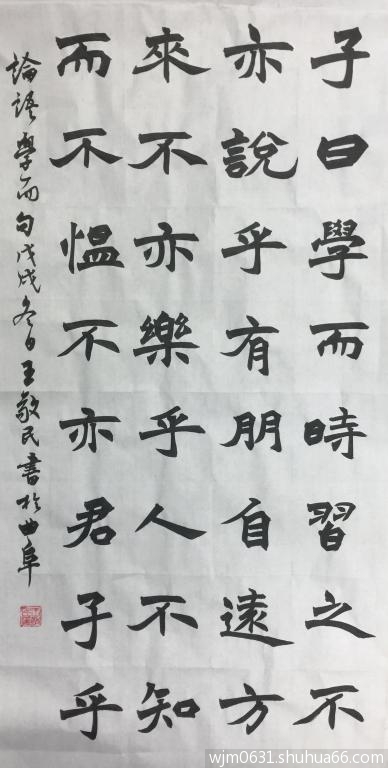 子曰學而時習之不
亦說乎有朋自遠方
來不亦樂乎人不知
而不愠不亦君子乎
論語學而句戊戌冬日王敬民書於曲阜
wjm0631.shuhua66.com